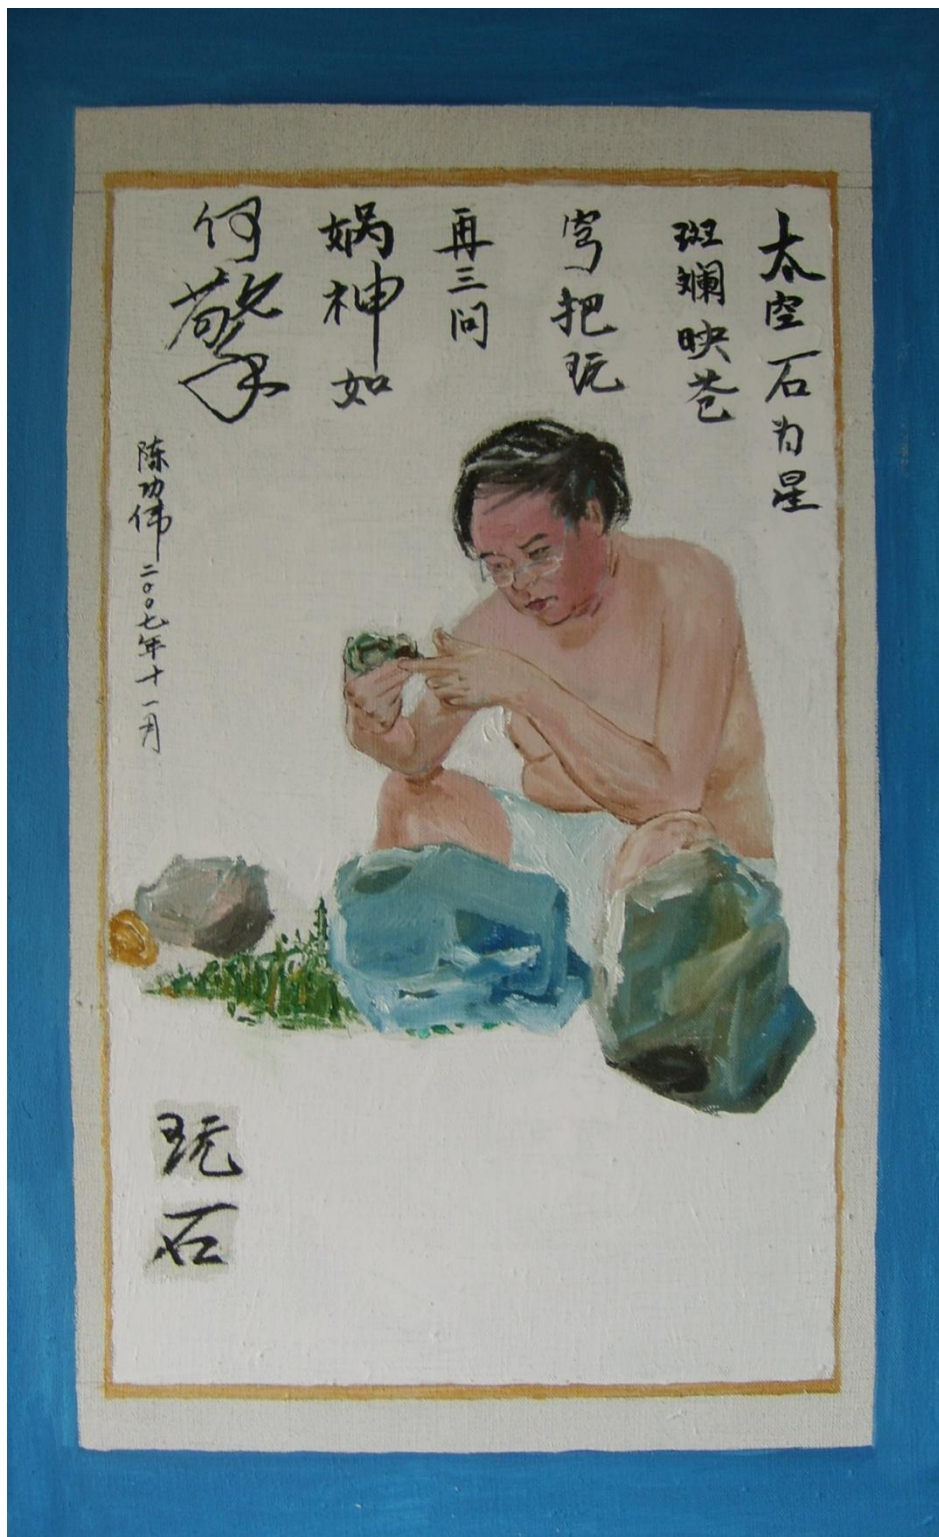 太空石为星
斑斓映苍
穹把玩
再三问
娲神如
何擎
陈功伟二〇〇七年十一月
玩石